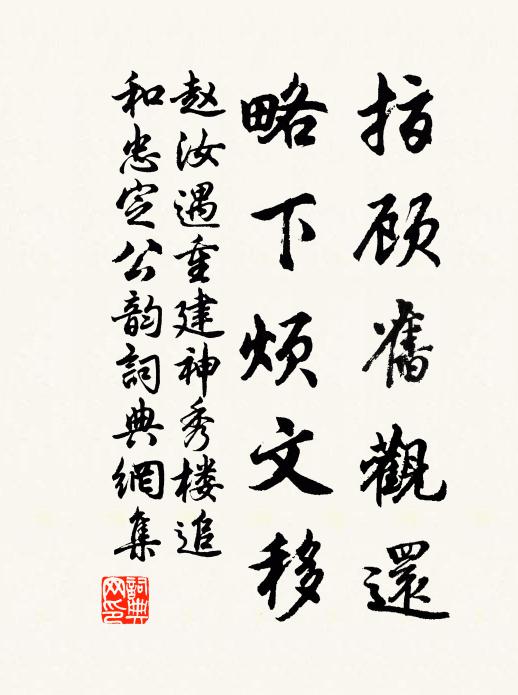 指顾舊觀還
略下烦文移
赵汝遇重建神秀楼追
和忠定公韵詞典網集
詞典网印